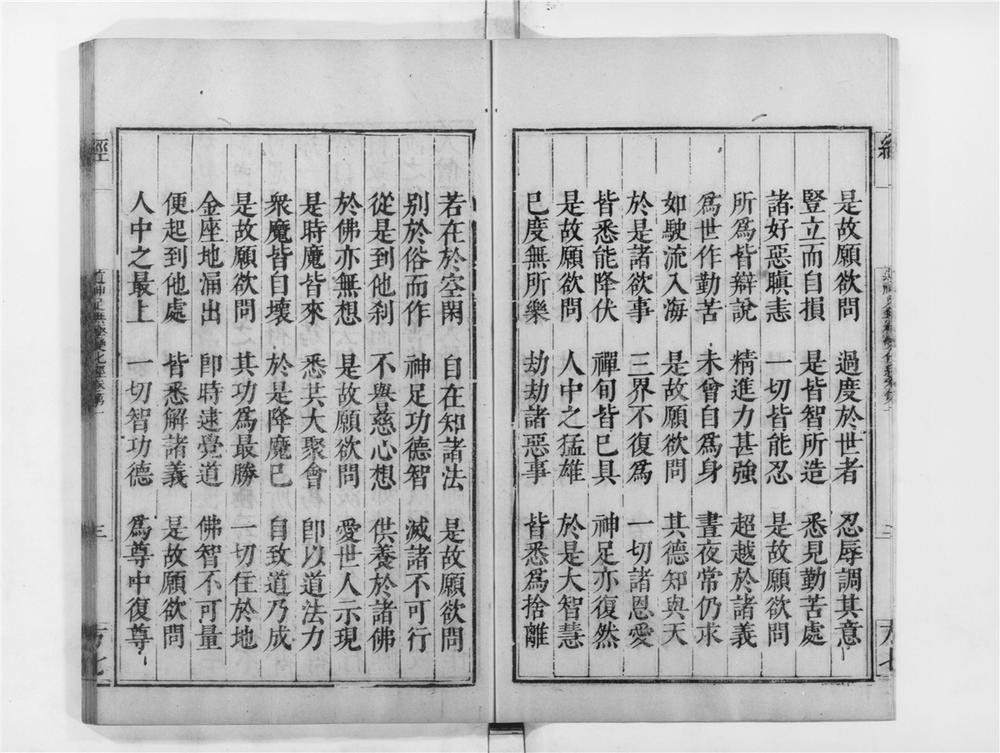 是故願欲問　過度於世者　忍辱調其意
豎立而自損　是皆智所造　悉見勤苦處
諸好惡瞋恚　一切皆能忍　是故願欲問
所為皆辯說　精進力甚強　超越於諸義
為世作勤苦　未曾自為身　晝夜常仍求
如駛流入海　是故願欲問　其德知與天
於是諸欲事　三界不復為　一切諸恩愛
皆悉能降伏　禪旬皆已具　神足亦復然
是故願欲問　人中之猛雄　於是大智慧
已度無所樂　劫劫諸惡事　皆悉為捨離
若在於空閑　自在知諸法　是故願欲問
別於俗而作　神足功德智　滅諸不可行
從是到他剎　不與慈心想　供養於諸佛
於佛亦無想　是故願欲問　愛世人示現
是時魔皆來　悉其大聚會　即以道法力
眾魔皆自壞　於是降魔已　自致道乃成
是故願欲問　其功為最勝　一切住於地
金座地涌出　即時速覺道　佛智不可量
便起到他處　皆悉解諸義　是故願欲問
人中之最上　一切智功德　為尊中復尊
經
道神足無極變化經卷第一
三